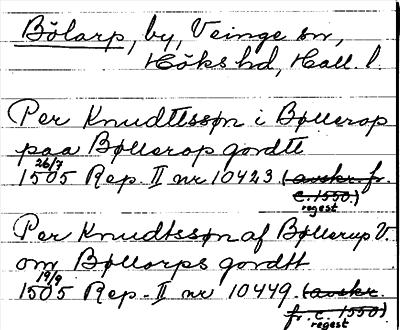 Bölarp, by, Veinge sn,
Höks hd, Hall. l.
Per Knudttssøn i Bøllerop
paa Bøllerop gordtt
26/7
1505 Rep. II nr 10423. (avskr. fr.
c. 1550.)
regest
Per Knudtssøn af Bøllerup V.
om Bøllorps gordtt
19/9
1505 Rep. II nr 10449. (avskr.
fr. c. 1550)
regest